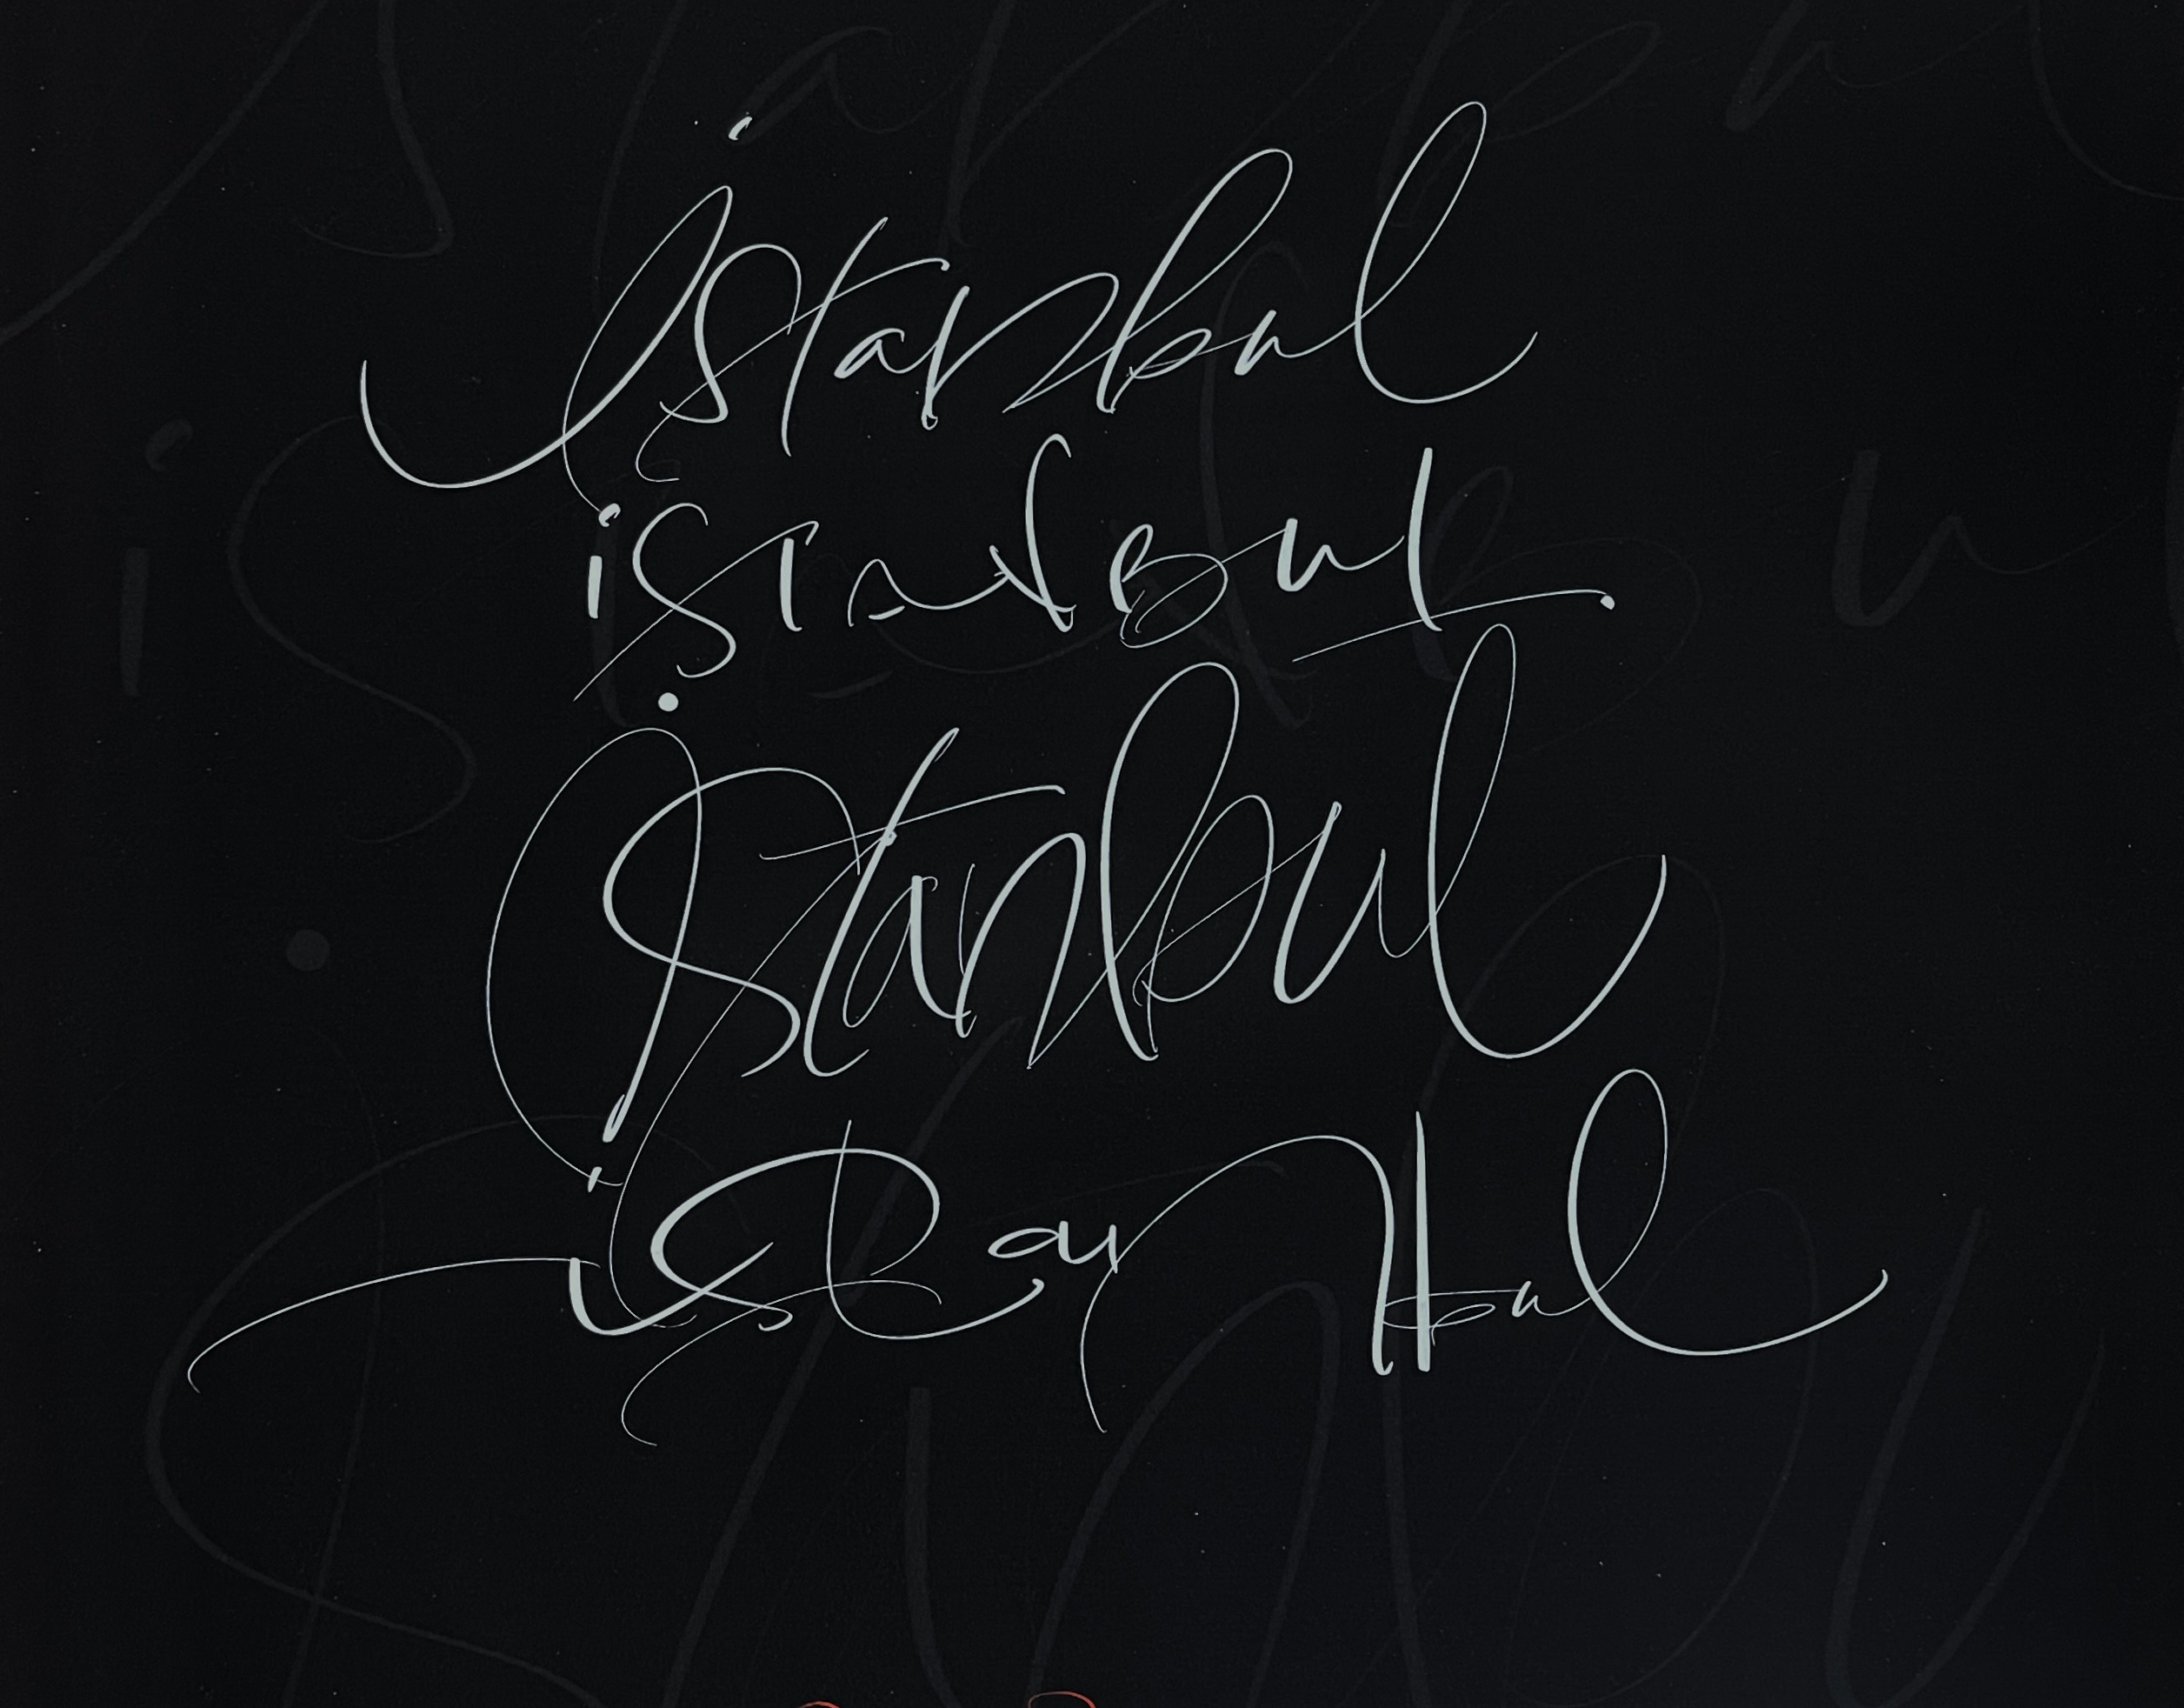 İstanbul
istanbul
İstanbul
istanbul